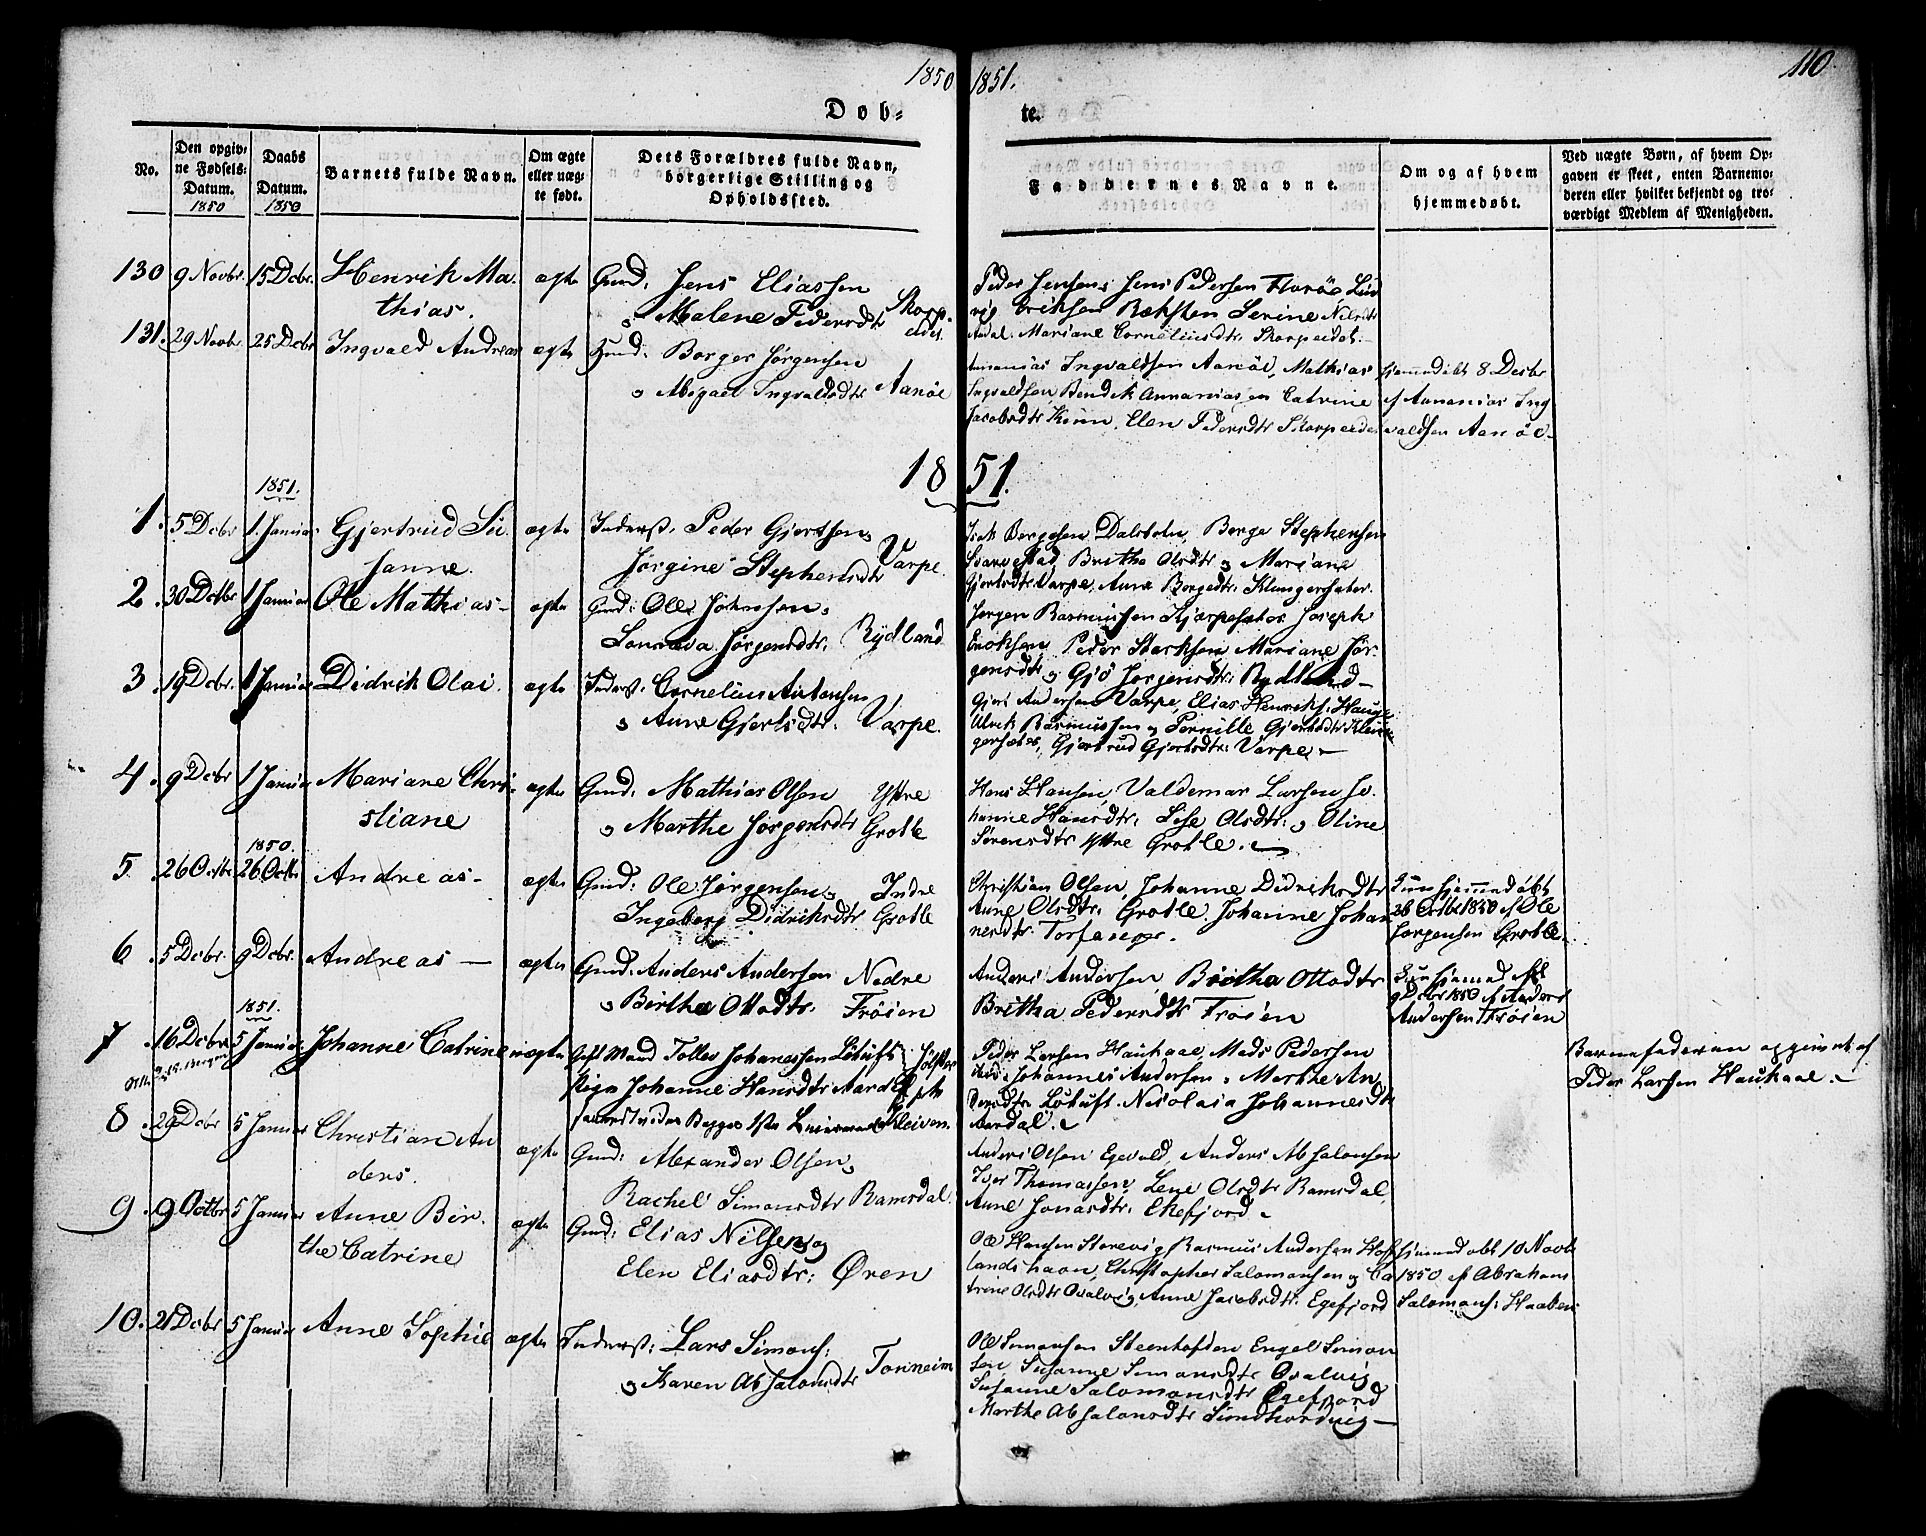 1850 1851. 110.
Døb- te.
No.
Den opgiv-
ne Fødsels-
Datum.
1850
Daabs
Datum.
1850
Barnets fulde Navn.
Om ægte
eller uæg-
te født.
Dets Forældres fulde Navn,
borgerlige Stilling og
Opholdssted.
Faddernes Navne.
Om og af hvem
hjemmedøbt.
Ved uægte Børn, af hvem Op-
gaven er skeet, enten Barnemo-
deren eller hvilket bekjendt og tro-
værdigt Medlem af Menigheden.
130 9 Novbr. 15 Dcbr. Henrik Ma-
thias.
ægte Gmd. Jens Eliassen
o Malene Pedersdtr
Peder Jensen, Jens Pedersen Florøe Lud
vig Eriksen Serine
Mariane Corneliusdtr. Skorpeidet.
131. 29 Novbr 25 Dcbr Ingvald Andreas
ægte Huusmd. Borger Jørgensen
o Abigael Ingvaldsdtr Aanøe
Ananias Ingvaldsen Aanøe, Mathias
Ingvaldsen, Bendik Annaniassen Catrine
Jacobsdtr Kinn, Elen Pedersdtr Skorpeidet
hjemmedøbt 8 Decbr
af Annanias Ing
valdsen Aanøe-
1851.
1851.
1. 5 Dcbr 1 Januar Gjertrud Su
sanne.
ægte Inderst. Peder Gjertsen,
Jørgine Stephensdtr Varpe.
Isak Borgesen Dalstolen, Børge Stephensen
Britha Olsdtr o Mariane
Gjertsdtr Varpe, Anne Borgedtr. Klungersæter.
2. 30 Dctbr 1 Januar Ole Mathias-
ægte Gmd: Ole Johnsen,
Jørgensdtr. Rydland
Jørgen Rasmussen Joseph
Eriksen, Peder Mariane Jør-
gensdtr. og Jørgensdtr. Rydland-
3. 19 Dcbr. 1 Januar Didrik Olai.
ægte Inderst. Cornelius Antonsen
o Anne Gjertsdtr. Varpe.
Gjert Andersen Varpe, Elias Henriks:
Ulrik Rasmussen og Pernille Gjertsdtr
gersæter, Gjertrud Gjertsdtr. Varpe.-
4. 9 Dcbr 1 Januar Mariane Chri-
stiane
ægte Gmd. Mathias Olsen Ytre
o Marthe Jørgensdtr Grotle
Hans Hansen, Valdemar Larsen Jo-
hanne Hansdtr. Lise Olsdtr. o Oline
Sørensdtr Yttre Grotle.
1850.
5. 26 Octbr 26 Octbr Andreas-
ægte Gmd: Ole Jørgensen, Indre
Ingeborg Didriksdtr Grotle
Christian Olsen, Johanne Didriksdtr
Anne Olsdtr. Grotle. Johanne Johan
nesdtr. Torfanger.
hjemmedøbt
26 Octbr 1850 af Ole
Jørgensen Grotle.
6. 5 Dcbr 9 Dcbr. Andreas-
ægte Gmd: Anders Andersen Nedre
o Birthe Ottodtr. Frøien
Anders Andersen, Britha Ottodtr
Britha Pedersdtr Frøien
hjemmedøbt
9 Dcbr 1850 af Anders
Andersen Frøien
1851.
7. 16 Dcbr 5 Januar Johanne Catrine
uægte Gift Mand Tollev Johanessen Løkuft
Pige Johanne Hansdtr Aardal
Peder Larsen Haukaae, Mads Pedersen
Johannes Andersen, Marthe An
dersdtr. Løkuft. Nicolaia Johannesdtr
Aardal.
Barnefaderen opgivet af
Peder Larsen Haukaae.
8. 29 Dcbr 5 Januar Christian An
ders.
ægte Gmd: Alexander Olsen,
Rachel Simonsdtr Ramsdal.
Anders Olsen Egevold, Anders Absalonsen
Iver Thomassen, Lene Olsdtr Ramsdal,
Anne Jonasdtr. Ekefjord.
9. 9 Octbr 5 Januar Anne Bir-
the Catrine
ægte Gmd: Elias Nilsen og
Elen Eliasdtr: Øren
Ole Hansen Storevig Rasmus Andersen
landshavn, Christopher Salomonsen og Ca
trine Olsdtr Anne Jacobsdtr. Egefjord
hjemmedøbt 10 Novbr
1850. af Abraham
Salomons:
10. 21 Dcbr 5 Januar Anne Sophie
ægte Inderst: Lars Simons:
o Karen Absalonsdtr Tonneim
Ole Simonsen Steenhoften Engel Simon
sen Susanne Simonsdtr
Susanne Salomonsdtr Egefjord
Marthe Absalonsdtr